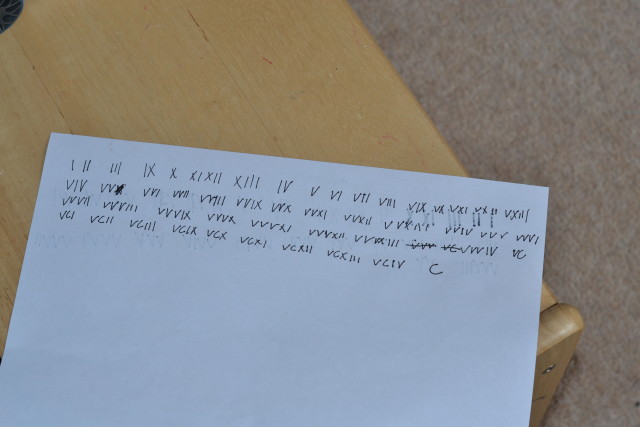 I II III IX X XIXII XIII IV V VI VII VIII VIX VX VXI VXII VXIII
VIV VVI VVII VVIII VVIX VVX VVXI VVXII VVIV VVV VVVI
VVVII VVVIII VVVIX VVVX VVVXI VVVXII VVVXIII VVVIV VC
VCI VCII VCIII VCIX VCX VCXI VCXII VCXIII VCIV C